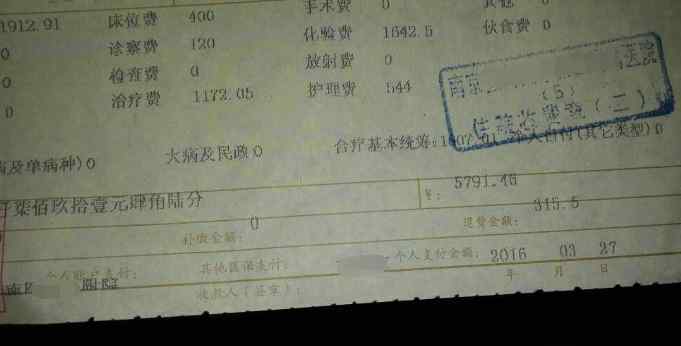 1912.91 床位费 400 手术费 0 其他 0
0 诊察费 120 化验费 1642.5 伙食费 0
0 检查费 0 放射费 0
0 治疗费 1172.05 护理费 544
南京 医院
(5)
住院收费处(二)
病及单病种)0 大病及民政0 合疗基本统筹: 个人自付(其它类型)0
仟柒佰玖拾壹元肆角陆分 ¥: 5791.46
补缴金额: 0 退费金额: 315.5
个人账户支付: 其他医保支付: 个人支付金额: 2016 03 27
年 月 日
收款人(签章):